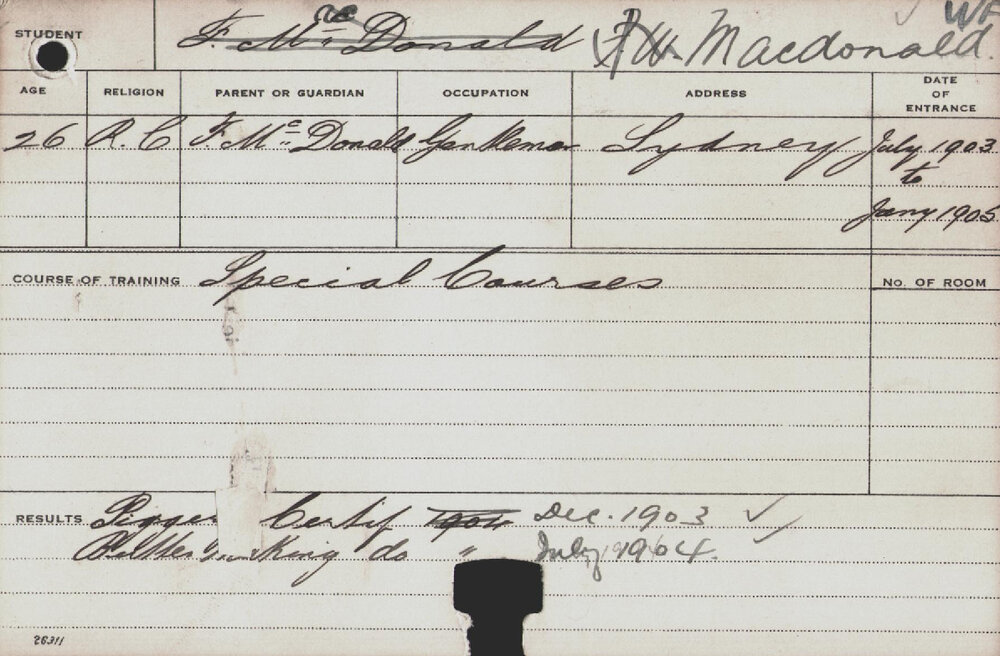 WF
STUDENT F. Mc Donald F.W. Macdonald.
AGE RELIGION PARENT OR GUARDIAN OCCUPATION ADDRESS DATE OF ENTRANCE
26 R.C F. Mc Donald Gentleman Sydney July 1903
to
Jany 1905
COURSE OF TRAINING Special Courses No. OF ROOM
RESULTS Certif 1904 Dec. 1903
do " July 1904.
26311